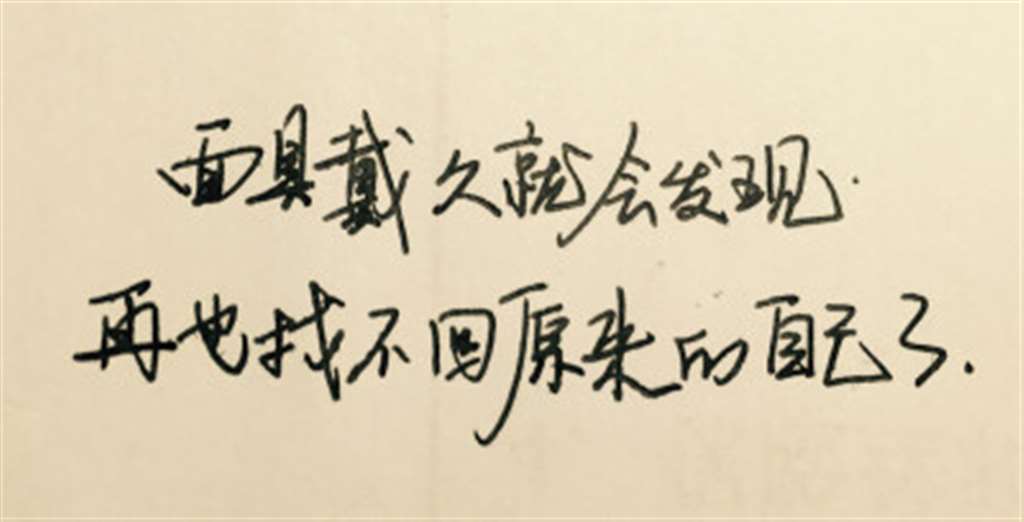 面具戴久就会发现.
再也找不回原来的自己了.